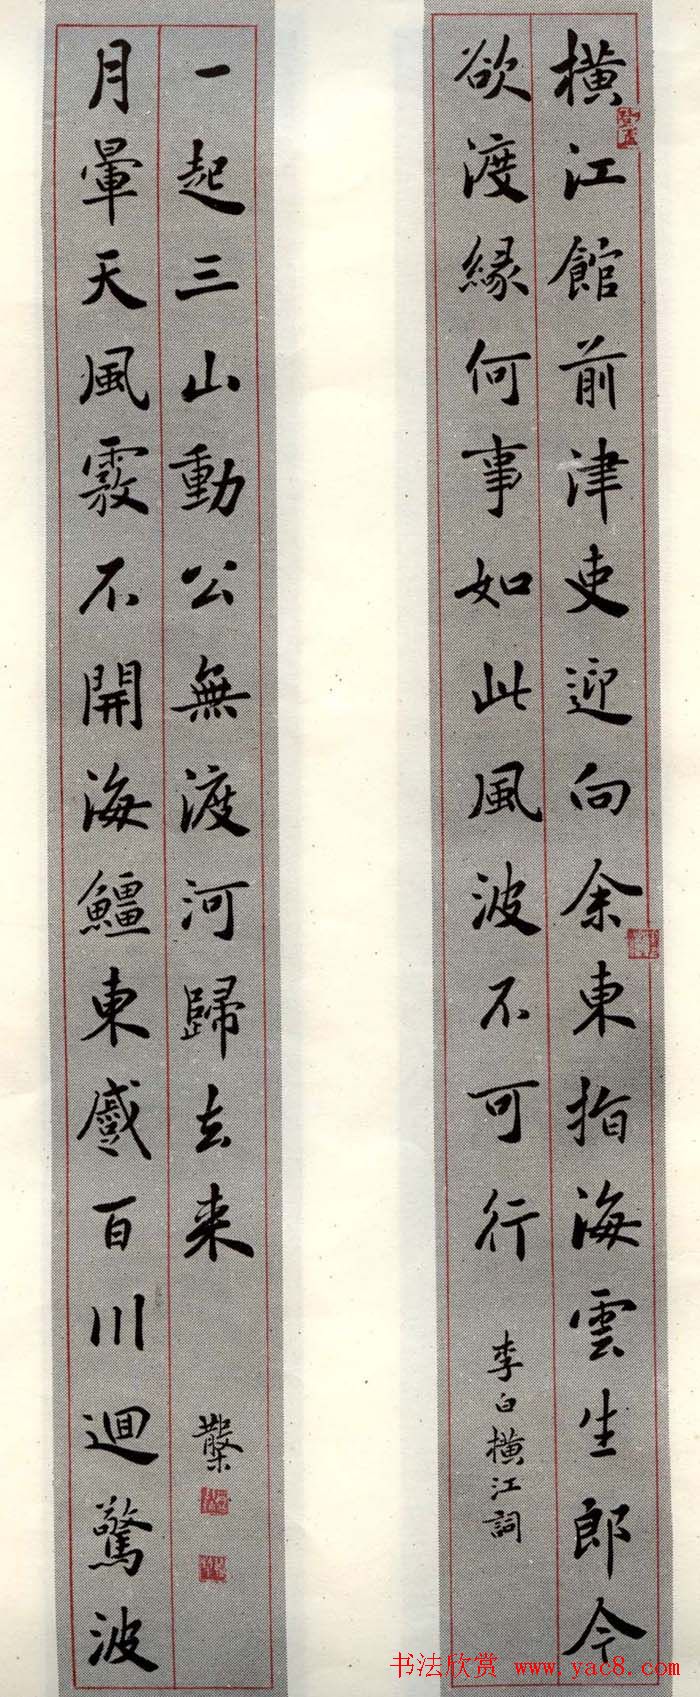 橫江館前津吏迎向余東指海雲生郎今
欲渡緣何事如此風波不可行
李白橫江詞
月暈天風霚不開海䲔東蹙百川迴驚波
一起三山動公無渡河歸去来
书法欣赏 www.yac8.com